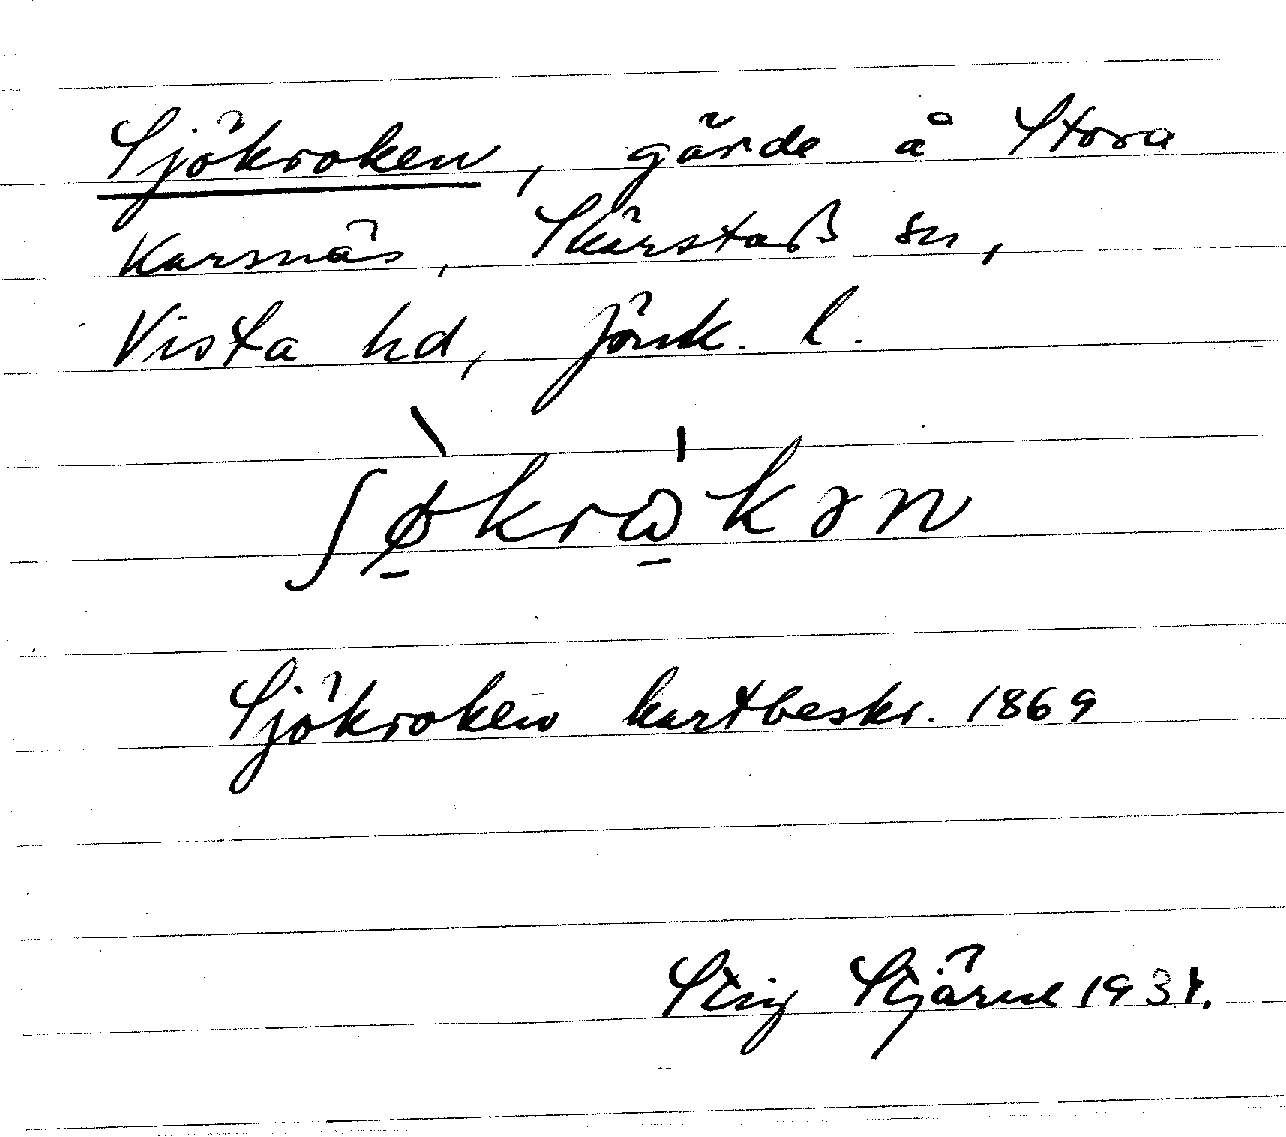 Sjökroken, gärde å Stora
Karsnäs, Skärstads sn,
Vista hd, Jönk. l.
ʃø̠̀krώ̠kən
Sjökroken kartbeskr. 1869
Stig Stjärne